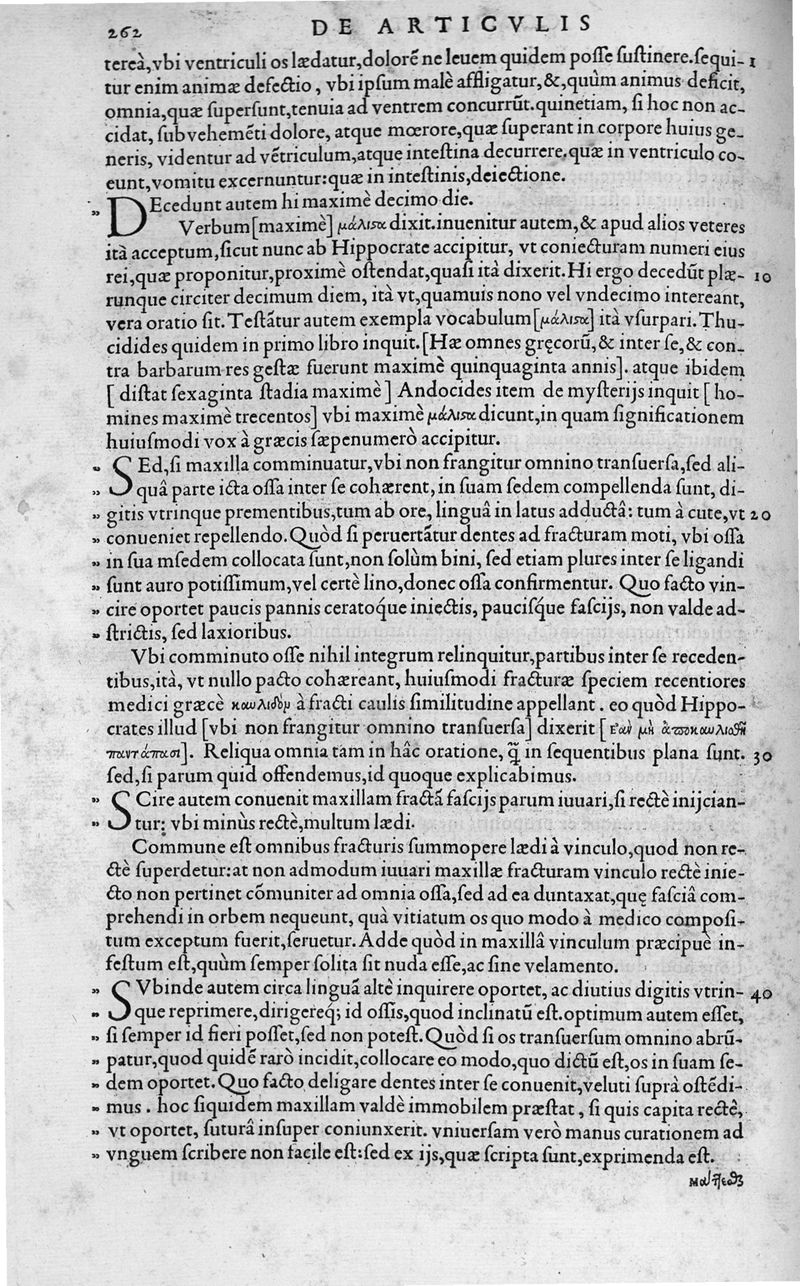 262 DE ARTICVLIS
tereà,vbi ventriculi os lædatur,dolorẽ ne leuem quidem poſſe ſuſtinere.ſequi- 1
tur enim animæ defectio, vbi ipſum malè affligatur,&,quùm animus deficit,
omnia,quæ ſuperſunt,tenuia ad ventrem concurrũt.quinetiam, ſi hoc non ac-
cidat, ſub vehemẽti dolore, atque mœrore,quæ ſuperant in corpore huius ge-
neris, videntur ad vẽtriculum,atque inteſtina decurrere.quæ in ventriculo co-
eunt,vomitu excernuntur:quæ in inteſtinis,deiectione.
„ DEcedunt autem hi maximè decimo die.
Verbum[maximè] μάλιστα dixit.inuenitur autem,& apud alios veteres
ità acceptum,ſicut nunc ab Hippocrate accipitur, vt coniecturam numeri eius
rei,quæ proponitur,proximè oſtendat,quaſi ità dixerit.Hi ergo decedũt plæ- 10
runque circiter decimum diem, ità vt,quamuis nono vel vndecimo intereant,
vera oratio ſit.Teſtãtur autem exempla vocabulum[μάλιστα] ità vſurpari.Thu-
cidides quidem in primo libro inquit.[Hæ omnes gręcorũ,& inter ſe,& con-
tra barbarum res geſtæ fuerunt maximè quinquaginta annis]. atque ibidem
[ diſtat ſexaginta ſtadia maximè ] Andocides item de myſterijs inquit [ ho-
mines maximè trecentos] vbi maximè μάλιστα dicunt,in quam ſignificationem
huiuſmodi vox à græcis ſæpenumerò accipitur.
„ SEd,ſi maxilla comminuatur,vbi non frangitur omnino tranſuerſa,ſed ali-
„ quâ parte icta oſſa inter ſe cohærent, in ſuam ſedem compellenda ſunt, di-
„ gitis vtrinque prementibus,tum ab ore, linguâ in latus adductâ: tum à cute,vt 20
„ conueniet repellendo.Quòd ſi peruertãtur dentes ad fracturam moti, vbi oſſa
„ in ſua mſedem collocata ſunt,non ſolùm bini, ſed etiam plures inter ſe ligandi
„ ſunt auro potiſſimum,vel certè lino,donec oſſa confirmentur. Quo facto vin-
„ cire oportet paucis pannis ceratoq́ue iniectis, pauciſq́ue faſcijs, non valde ad-
„ ſtrictis, ſed laxioribus.
Vbi comminuto oſſe nihil integrum relinquitur,partibus inter ſe receden-
tibus,ità, vt nullo pacto cohæreant, huiuſmodi fracturæ ſpeciem recentiores
medici græcè καυλιδὸμ à fracti caulis ſimilitudine appellant. eo quòd Hippo-
crates illud [vbi non frangitur omnino tranſuerſa] dixerit [ ἐὰν μὴ ἀποκαυλισθῇ
παντάπασι]. Reliqua omnia tam in hâc oratione, q̃ in ſequentibus plana ſunt. 30
ſed,ſi parum quid offendemus,id quoque explicabimus.
„ SCire autem conuenit maxillam fractã faſcijs parum iuuari,ſi rectè inijcian-
„ tur: vbi minùs rectè,multum lædi.
Commune eſt omnibus fracturis ſummopere lædi à vinculo,quod non re-
ctè ſuperdetur:at non admodum iuuari maxillæ fracturam vinculo rectè inie-
cto non pertinet cõmuniter ad omnia oſſa,ſed ad ea duntaxat,quę faſciâ com-
prehendi in orbem nequeunt, quà vitiatum os quo modo à medico compoſi-
tum exceptum fuerit,ſeruetur.Adde quòd in maxillâ vinculum præcipuè in-
feſtum eſt,quùm ſemper ſolita ſit nuda eſſe,ac ſine velamento.
„ SVbinde autem circa linguã altè inquirere oportet, ac diutius digitis vtrin- 40
„ que reprimere,dirigereq́; id oſſis,quod inclinatũ eſt.optimum autem eſſet,
„ ſi ſemper id fieri poſſet,ſed non poteſt.Quòd ſi os tranſuerſum omnino abrũ-
„ patur,quod quidẽ rarò incidit,collocare eo modo,quo dictũ eſt,os in ſuam ſe-
„ dem oportet.Quo facto deligare dentes inter ſe conuenit,veluti ſuprà oſtẽdi-
„ mus. hoc ſiquidem maxillam valdè immobilem præſtat, ſi quis capita rectè,
„ vt oportet, ſuturâ inſuper coniunxerit. vniuerſam verò manus curationem ad
„ vnguem ſcribere non facile eſt:ſed ex ijs,quæ ſcripta ſunt,exprimenda eſt.